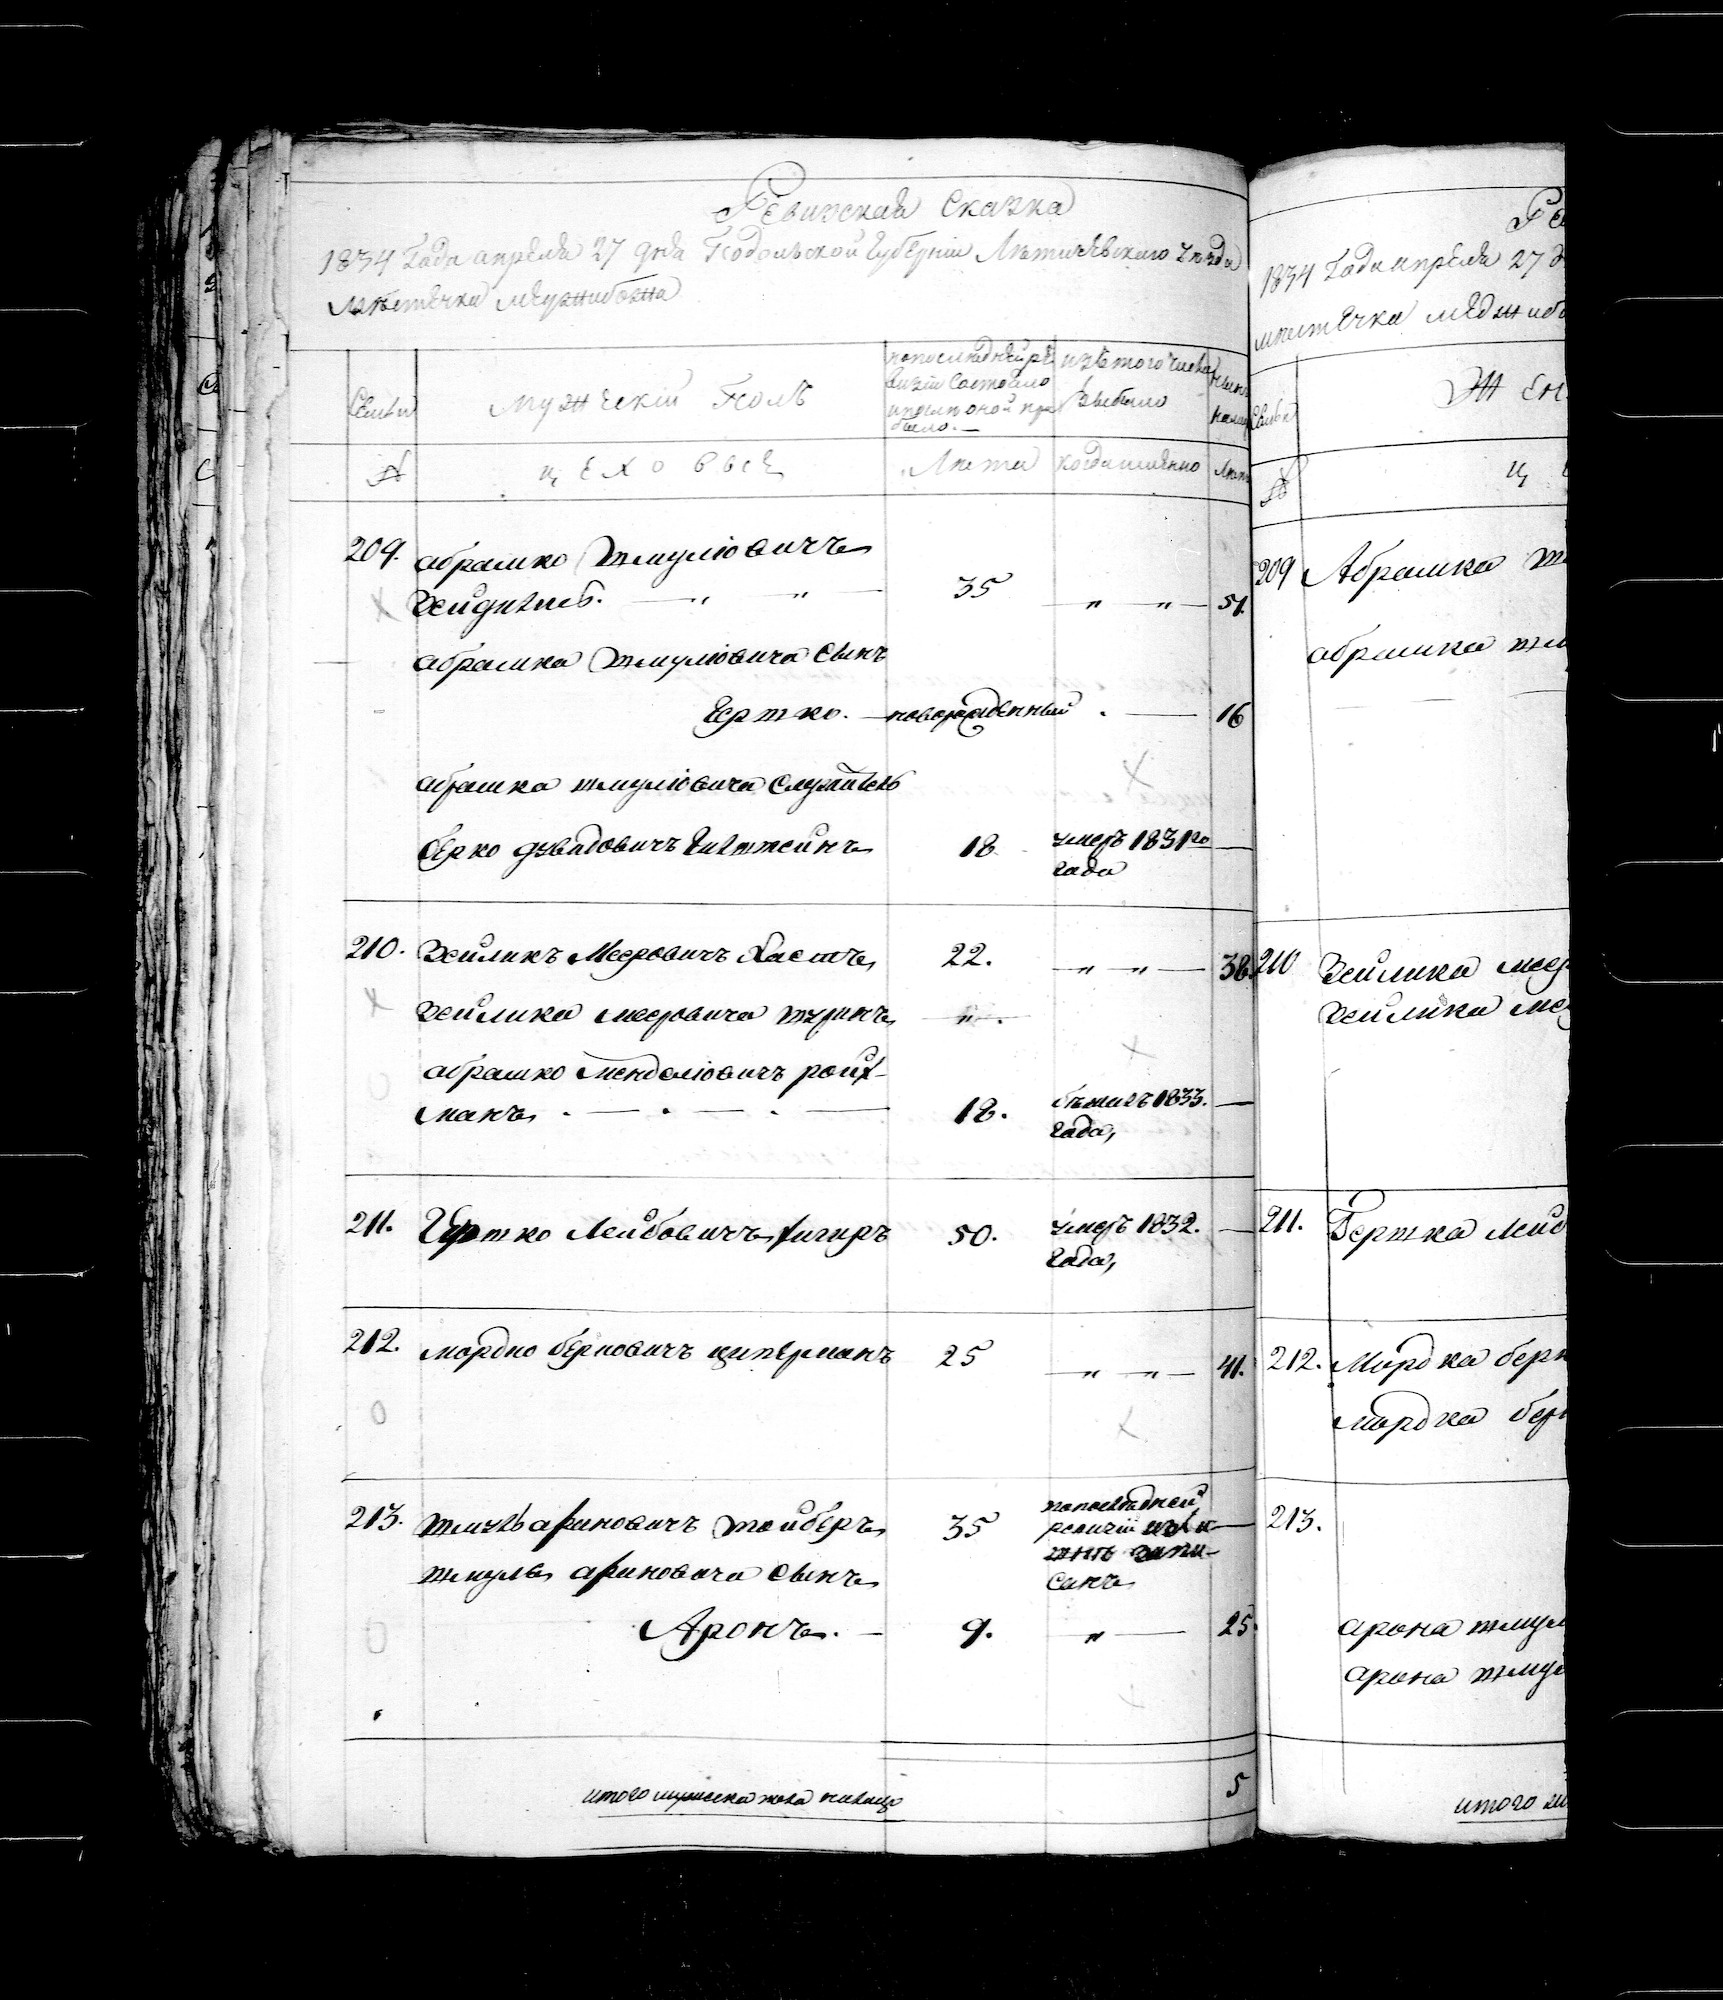 Ревизская Сказка
1834 Года апреля 27 дня Подольской Губернии Летичевского уезда
местечка Межибожа
Семьи
Мужеский Полъ
по последней ре
визии состояло
и после оной при
было.
изъ того числа
выбыло
ныне
налицо
№
цеховые
Лета
когда именно
Лета
209. абрамко Шмулювичъ
35 „ „ 51.
абрамка Шмулювича сынъ
Гершко. новорожденный 16
абрамка шмулювича
берко 18 умеръ 1831го
года
210. Зейликъ Мееровичъ 22. „ „ 38
Зейлика мееровича шуринъ „.
абрамко Мендолювичъ рой
манъ 18. бежалъ 1833.
года,
211. Гершко Лейбовичъ 50. умеръ 1832.
года,
212. мордко берковичъ циперманъ 25 „ „ 41.
213. шмуль ароновичъ тейберъ 35 по последней
ревизии
запи
санъ
шмуля ароновича сынъ
Аронъ. 9. „ 25.
итого мужеска пола налицо 5
1834 Года апреля 27
местечка Меджибо
Семьи
Жен
№
ц
209 Абрамка
абрамка
210 Зейлика меер
Зейлика мее
211. Гершка лейб
212. Мордка берк
мордка бер
213.
арона шмул
арона шмул
итого